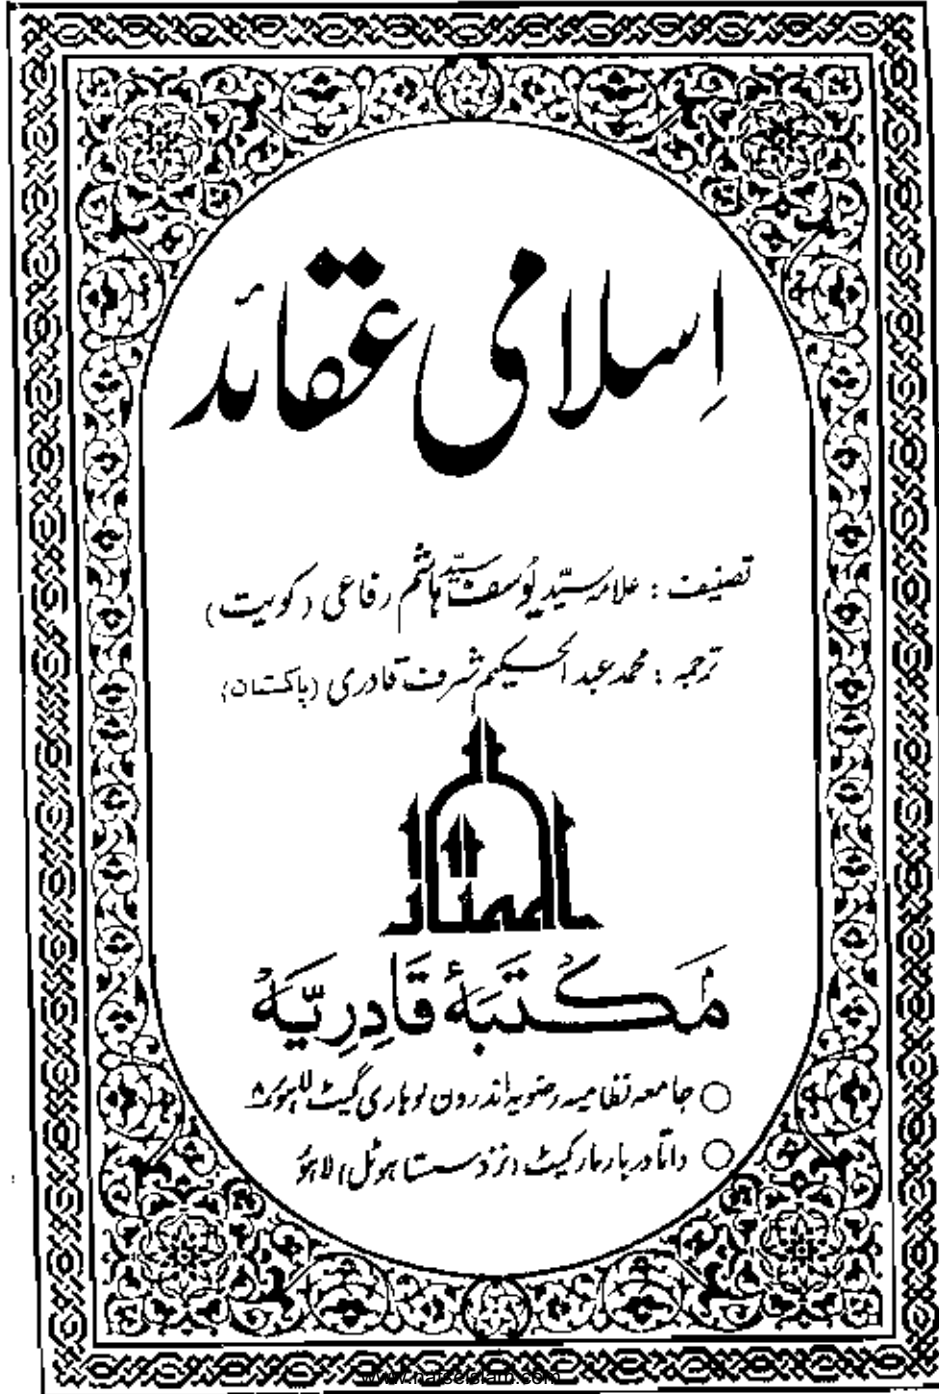 اِسلامی عقائد
تصنیف : علامہ سیّد یُوسف سیّد ہاشم رفاعی (کویت)
ترجمہ : محمد عبد الحکیم شرف قادری (پاکستان)
مَکتَبَۂ قَادِرِیَّہ
○ جامعہ نظامیہ رضویہ اندرون لوہاری گیٹ لاہور ۸
○ داتا دربار مارکیٹ (نزد سستا ہوٹل) لاہور
www.nafseislam.com